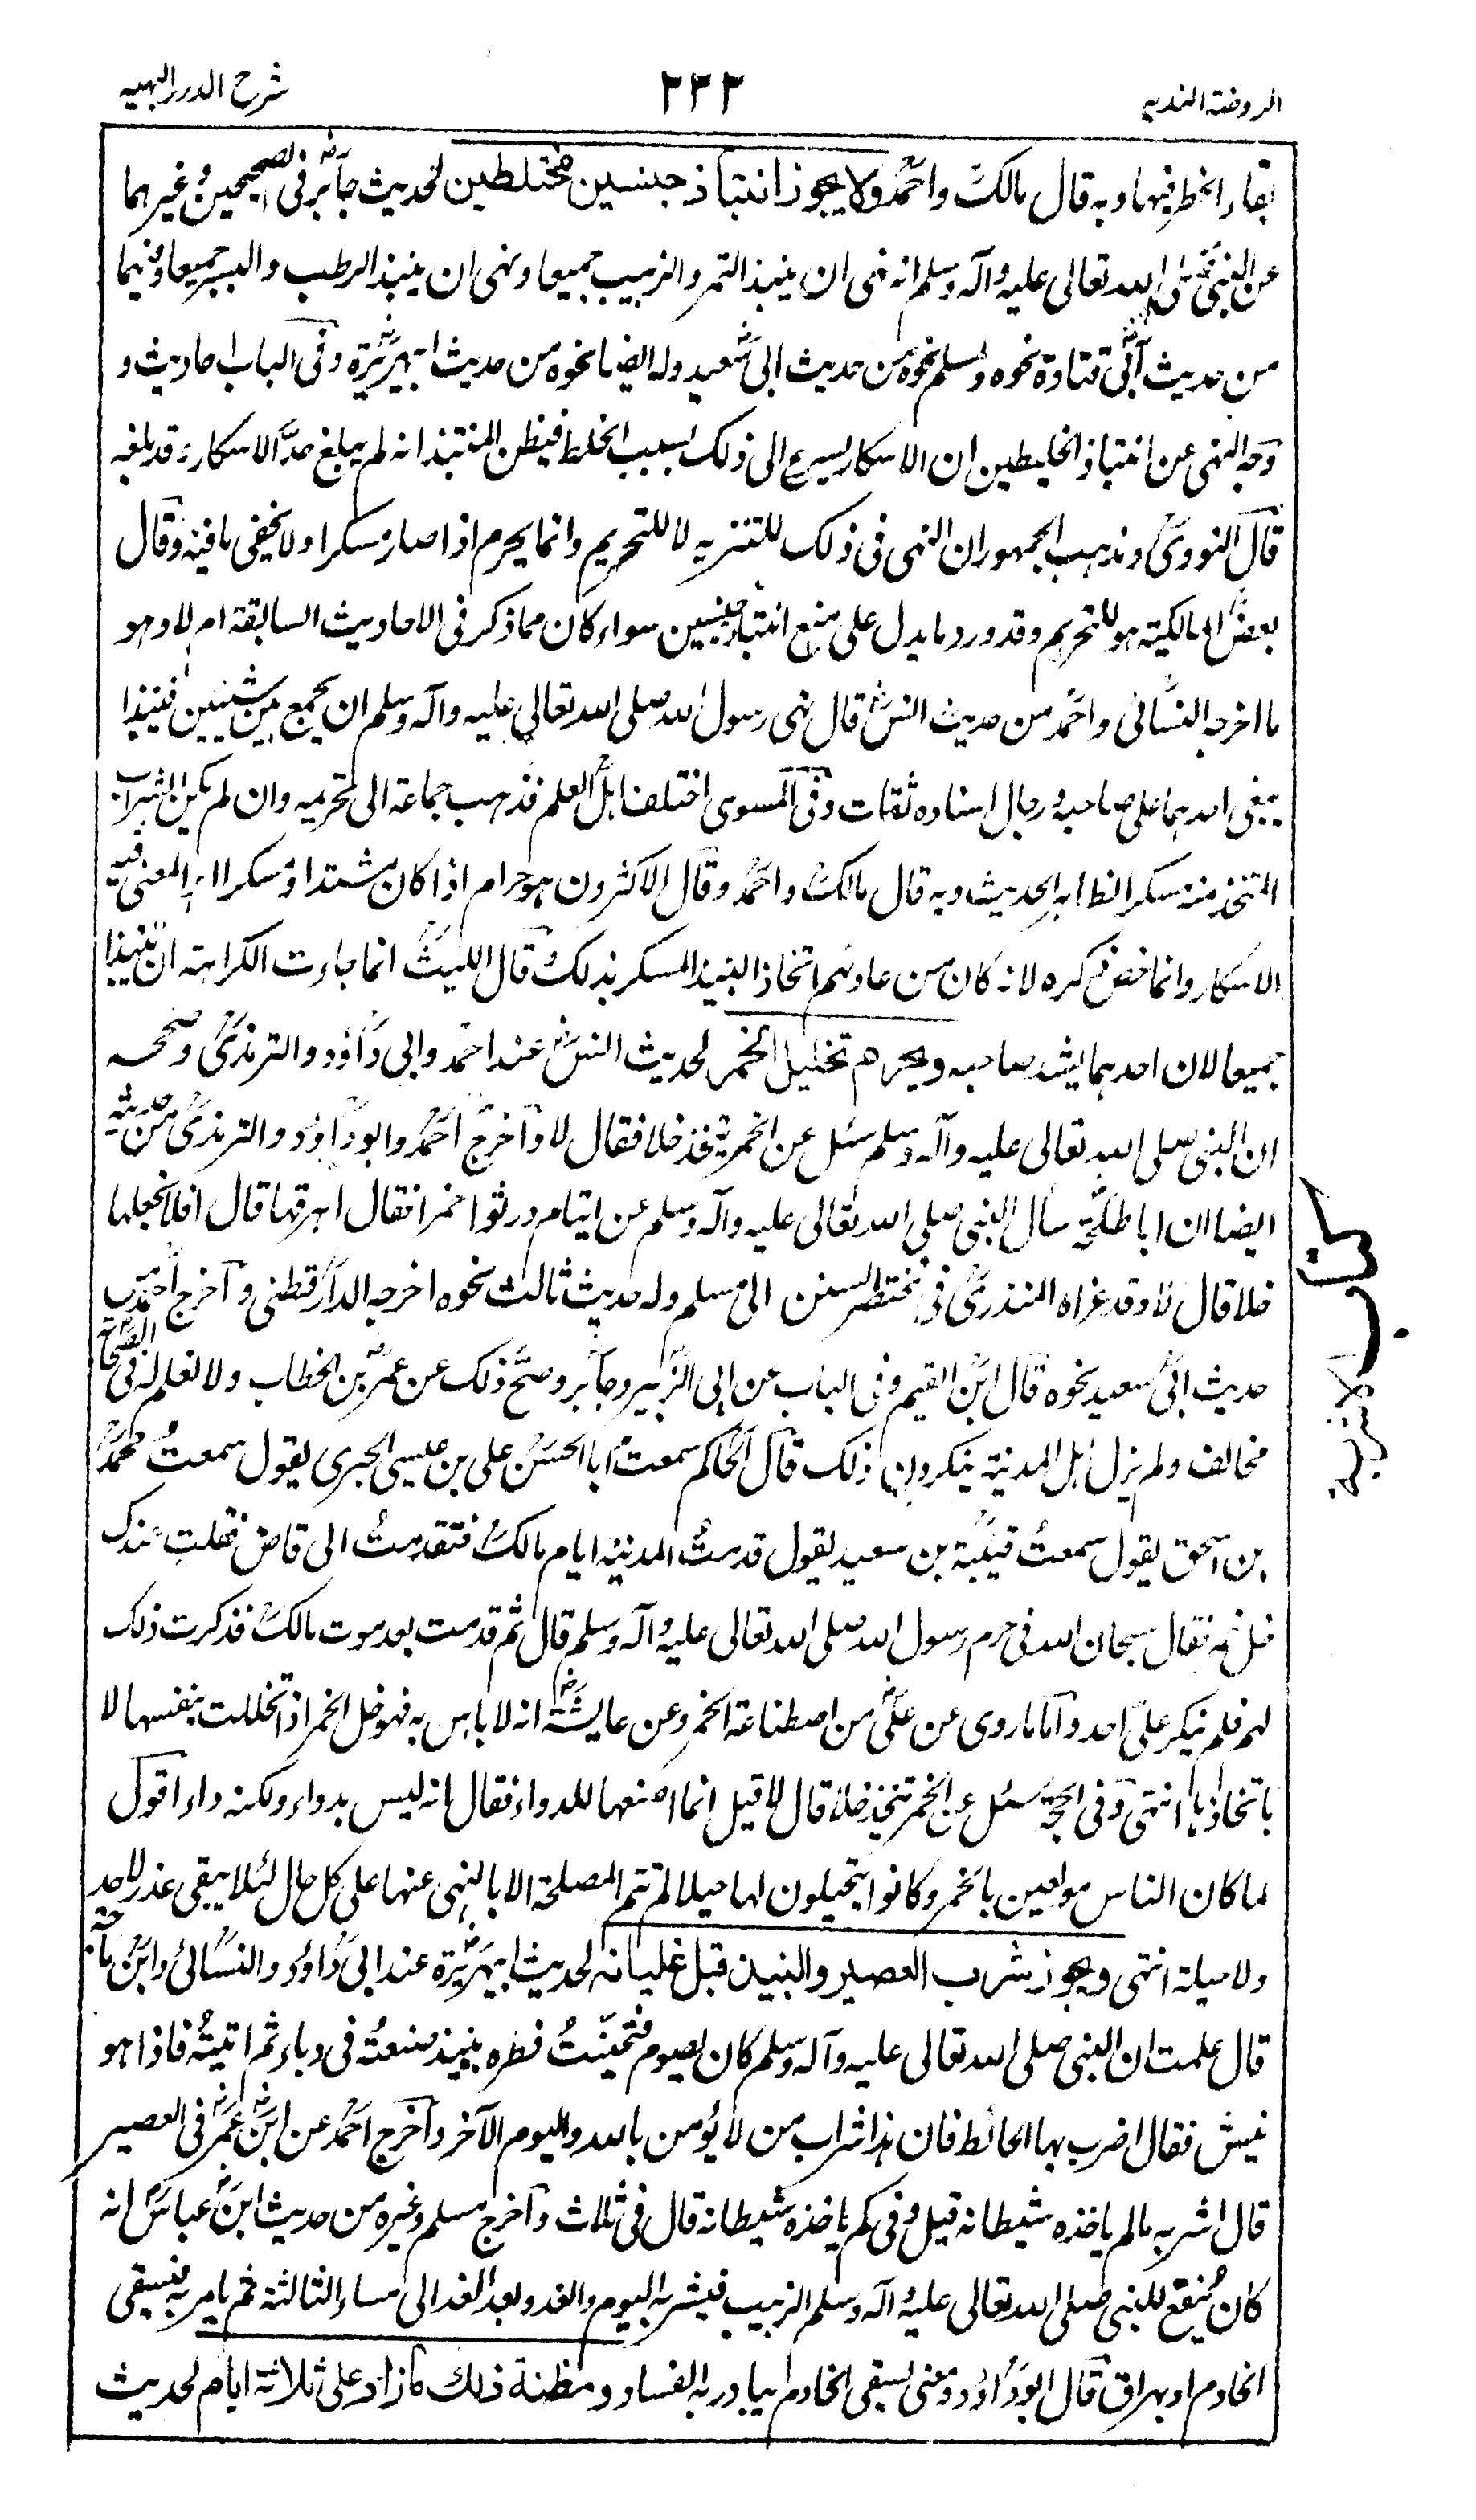 الروضة الندية
٢٣٢
شرح الدرر البهية
بقاء الخطر فيها وبه قال مالك واحمد ولا يجوز انتباذ جنسين مختلطين لحديث جابر رض فى الصحيحين وغيرهما
عن النبى صلى الله تعالى عليه وآله وسلم انه نهى ان ينبذ التمر والزبيب جميعا ونهى ان ينبذ الرطب والبسر جميعا وفيهما
من حديث ابى قتادة نحوه ولمسلم نحوه من حديث ابى سعيد وله ايضا نحوه من حديث ابيهريرة وفى الباب احاديث و
وجه النهى عن انتباذ الخليطين ان الاسكار يسرع الى ذلك بسبب الخلط فيظن المنتبذ انه لم يبلغ حد الاسكار وقد بلغه
قال النووى ومذهب الجمهور ان النهى فى ذلك للتنزيه لا للتحريم وانما يحرم اذا صار مسكرا ولا يخفى ما فيه وقال
بعض المالكية هو للتحريم وقد ورد ما يدل على منع انتباذ جنسين سواء كان مما ذكر فى الاحاديث السابقة ام لا وهو
ما اخرجه النسائى واحمد من حديث انس قال نهى رسول الله صلى الله تعالى عليه وآله وسلم ان يجمع بين شيئين فينبذا
يبغى احدهما على صاحبه ورجال اسناده ثقات وفى المسوى اختلف اهل العلم فذهب جماعة الى تحريمه وان لم يكن الشراب
المتخذ منه مسكرا لظاهر الحديث وبه قال مالك واحمد وقال الاكثرون هو حرام اذا كان مشتدا ومسكرا المعنى فيه
الاسكار وانما خص ذكره لانه كان من عادتهم اتخاذ النبيذ المسكر بذلك قال الليث انما جاءت الكراهة ان ينبذا
جميعا لان احدهما يشد صاحبه ويحرم تخليل الخمر لحديث انس عند احمد وابى داؤد والترمذى وصححه
ان النبى صلى الله تعالى عليه وآله وسلم سئل عن الخمر يتخذ خلا فقال لا واخرج احمد وابو داؤد والترمذى من حديثه
ايضا ان ابا طلحة سال النبى صلى الله تعالى عليه وآله وسلم عن ايتام ورثوا خمرا فقال اهرقها قال افلا نجعلها
خلا قال لا وقد عزاه المنذرى فى مختصر السنن الى مسلم وله حديث ثالث نحوه اخرجه الدارقطنى واخرج احمد من
حديث ابى سعيد نحوه قال ابن القيم وفى الباب عن ابى الزبير وجابر وصح ذلك عن عمر بن الخطاب ولا نعلم له فى الصحابة
مخالف ولم يزل اهل المدينة ينكرون ذلك قال الحاكم سمعت ابا الحسن على بن عيسى الحيرى يقول سمعت محمد
بن اسحق يقول سمعت قتيبة بن سعيد يقول قدمت المدينة ايام مالك فتقدمت الى قاض فقلت عندك
خل خمر فقال سبحان الله فى حرم رسول الله صلى الله تعالى عليه وآله وسلم قال ثم قدمت بعد موت مالك فذكرت ذلك
لهم فلم ينكر على احد واما ما روى عن على من اصطناعة الخمر وعن عايشة انه لا باس به فهو خل الخمر اذا تخللت بنفسها لا
باتخاذها انتهى وفى الحجة سئل عن الخمر تتخذ خلا قال لا قيل انما اصنعها للدواء فقال انه ليس بدواء ولكنه داء اقول
لما كان الناس مولعين بالخمر وكانوا يتحيلون لها حيلا لم تتم المصلحة الا بالنهى عنها على كل حال لئلا يبقى عذر لاحد
ولا حيلة انتهى ويجوز شرب العصير والنبيذ قبل غليانه لحديث ابيهريرة عند ابى داؤد والنسائى وابن ماجة
قال علمت ان النبى صلى الله تعالى عليه وآله وسلم كان يصوم فتحينت فطره بنبيذ صنعته فى دباء ثم اتيته فاذا هو
ينش فقال اضرب بها الحائط فان هذا شراب من لا يؤمن بالله واليوم الآخر واخرج احمد عن ابن عمر فى العصير
قال اشربه مالم ياخذه شيطانه قيل وفى كم ياخذه شيطانه قال فى ثلاث واخرج مسلم وغيره من حديث ابن عباس انه
كان ينقع للنبى صلى الله تعالى عليه وآله وسلم الزبيب فيشربه اليوم والغد وبعد الغد الى مساء الثالثة ثم يامر به فيسقى
الخادم او يهراق قال ابو داؤد ومعنى يسقى الخادم يبادر به الفساد ومظنة ذلك ما زاد على ثلاثة ايام لحديث
كتاب الاشربة